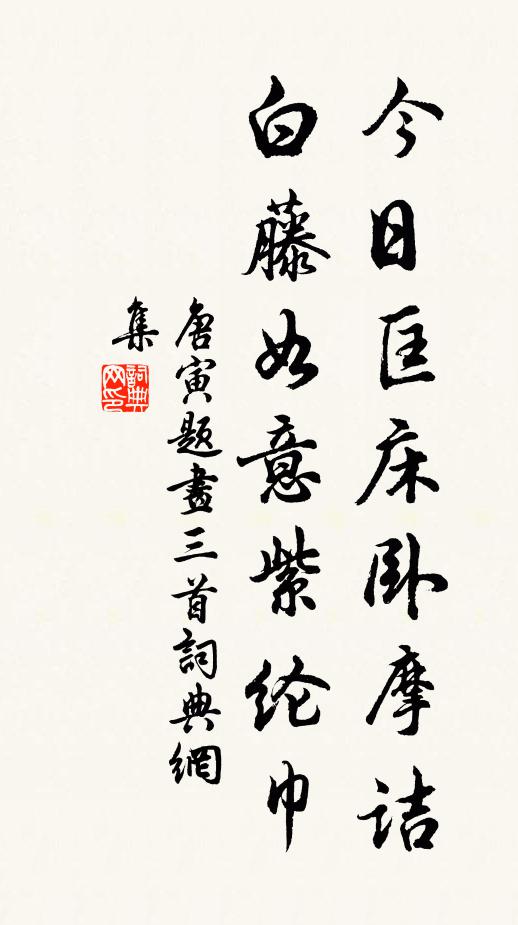 今日匡床卧摩诘
白藤如意紫纶巾
唐寅题畫三首詞典網
集
詞典
网印